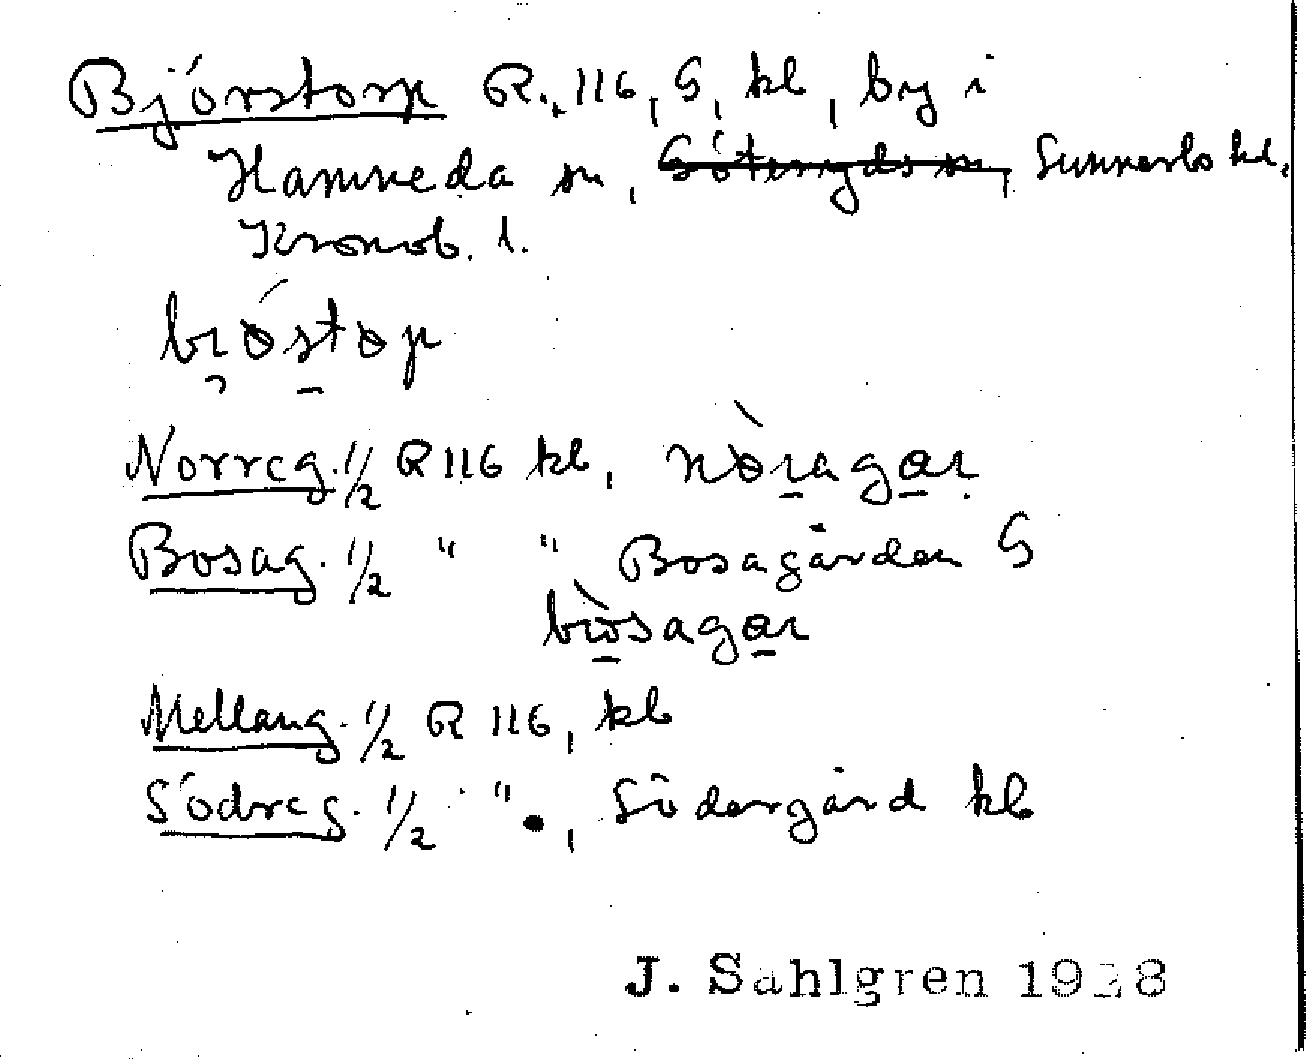 Björstorp R. 116, G, kb, by i
Hamneda sn, Göteryds sn, Sunnerbo hd,
Kronob. l.
bi̯östɵp
Norreg. 1/2 R 116 kb, nɵ̀ragaɹ
Bosag. 1/2 " " Bosagården G
bòsagaɹ
Mellang. 1/2 R 116, kb
Södreg. 1/2 " , Södergård kb
J. Sahlgren 1928